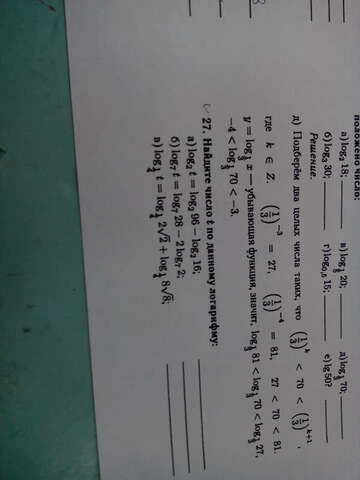 положено число:
а) log₂ 18; ____ в) log_{1/3} 20; ____ д) log_{1/3} 70; ____
б) log₃ 30; ____ г) log_{0,5} 15; ____ е) lg 50? ____
Решение.
д) Подберём два целых числа таких, что (1/3)^k < 70 < (1/3)^{k+1},
где k ∈ Z. (1/3)^{-3} = 27, (1/3)^{-4} = 81, 27 < 70 < 81.
y = log_{1/3} x — убывающая функция, значит, log_{1/3} 81 < log_{1/3} 70 < log_{1/3} 27,
-4 < log_{1/3} 70 < -3.
27. Найдите число t по данному логарифму:
а) log₂ t = log₂ 96 - log₂ 16;
б) log₇ t = log₇ 28 - 2 log₇ 2;
в) log_{1/4} t = log_{1/4} 2√2 + log_{1/4} 8√8;